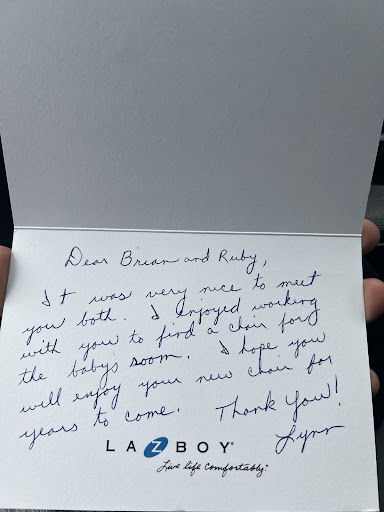 Dear Brian and Ruby,
It was very nice to meet
you both. I enjoyed working
with you to find a chair for
the baby's room. I hope you
will enjoy your new chair for
years to come. Thank You!
Lynn
LA Z BOY®
Live life comfortably.®